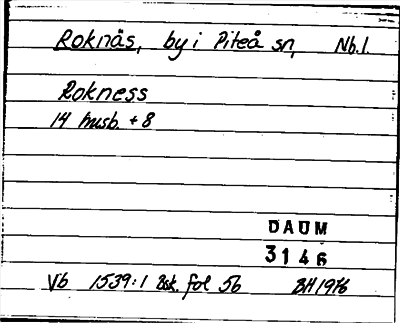 Roknäs, by i Piteå sn, Nb.l.
Rokness
14 husb. + 8
DAUM
3146
Vb 1539:1 Bsk. fol 56 BH 1976